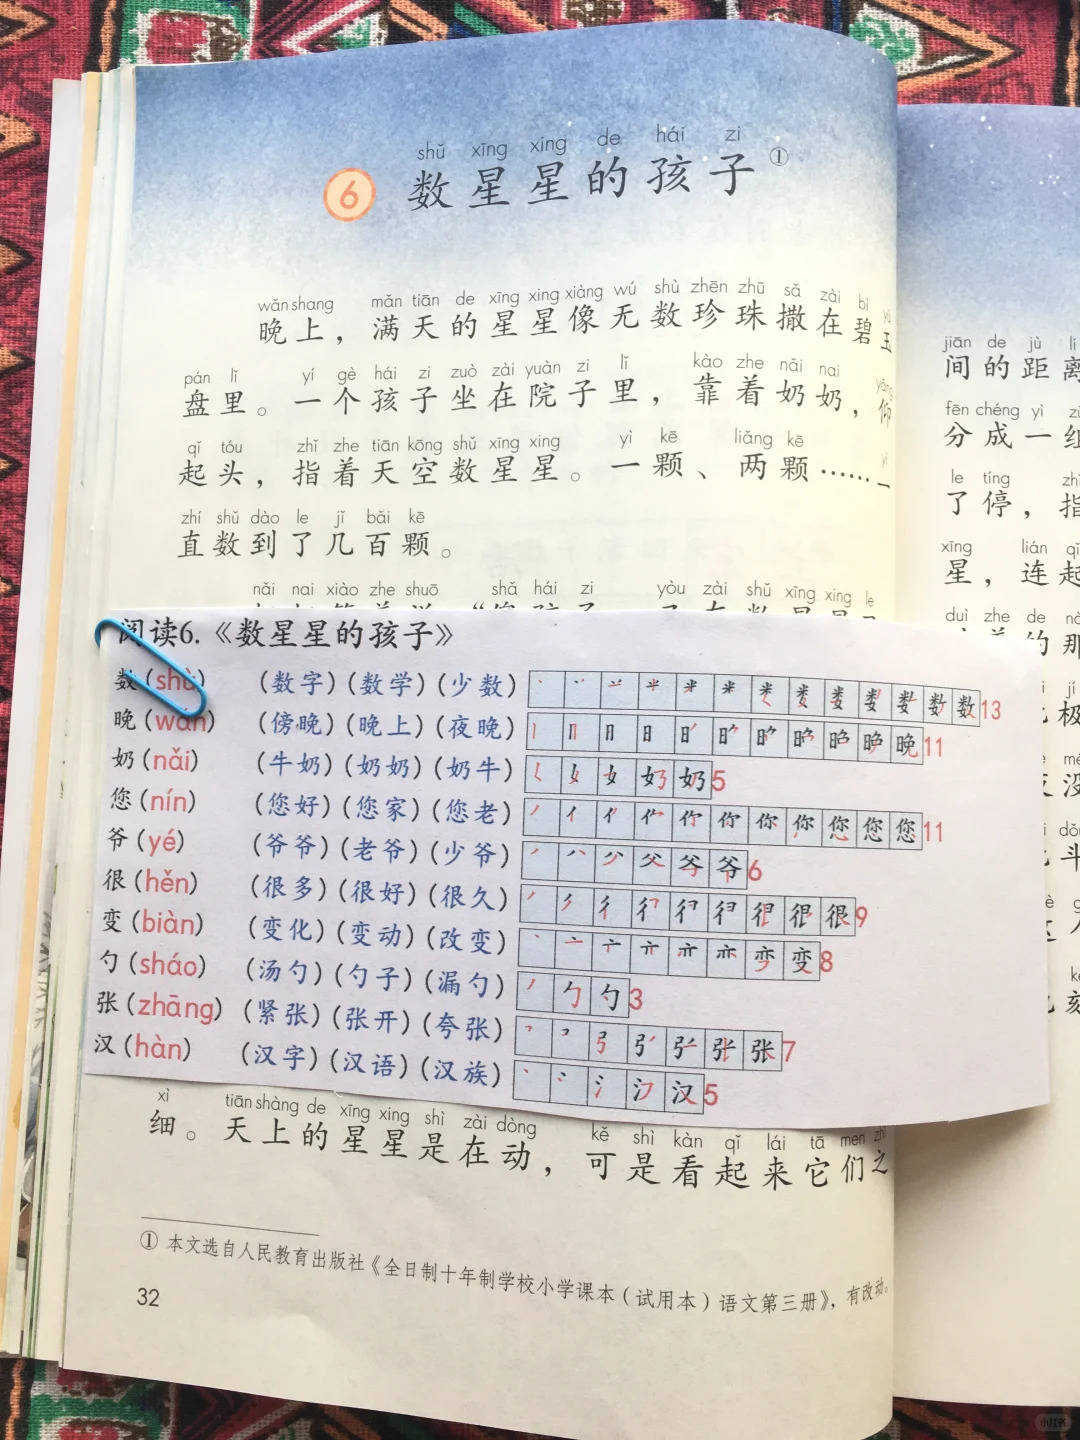 shǔ xīng xing de hái zi
6 数星星的孩子①
wǎn shang mǎn tiān de xīng xing xiàng wú shù zhēn zhū sǎ zài bì yù
晚上，满天的星星像无数珍珠撒在碧玉
pán lǐ yí gè hái zi zuò zài yuàn zi lǐ kào zhe nǎi nai yǎng
盘里。一个孩子坐在院子里，靠着奶奶，仰
qǐ tóu zhǐ zhe tiān kōng shǔ xīng xing yì kē liǎng kē yì
起头，指着天空数星星。一颗、两颗……一
zhí shǔ dào le jǐ bǎi kē
直数到了几百颗。
nǎi nai xiào zhe shuō shǎ hái zi yòu zài shǔ xīng xing le
阅读6.《数星星的孩子》
数(shù) (数字)(数学)(少数) 13
晚(wǎn) (傍晚)(晚上)(夜晚) 11
奶(nǎi) (牛奶)(奶奶)(奶牛) 5
您(nín) (您好)(您家)(您老) 11
爷(yé) (爷爷)(老爷)(少爷) 6
很(hěn) (很多)(很好)(很久) 9
变(biàn) (变化)(变动)(改变) 8
勺(sháo) (汤勺)(勺子)(漏勺) 3
张(zhāng) (紧张)(张开)(夸张) 7
汉(hàn) (汉字)(汉语)(汉族) 5
xì tiān shàng de xīng xing shì zài dòng kě shì kàn qǐ lái tā men zhī
细。天上的星星是在动，可是看起来它们之
① 本文选自人民教育出版社《全日制十年制学校小学课本（试用本）语文第三册》，有改动。
32
jiān de jù lí
间的距离
fēn chéng yì zǔ
分成一组
le tíng zhǐ
了停，指
xīng lián qǐ
星，连起
duì zhe de nà
的那
小红书